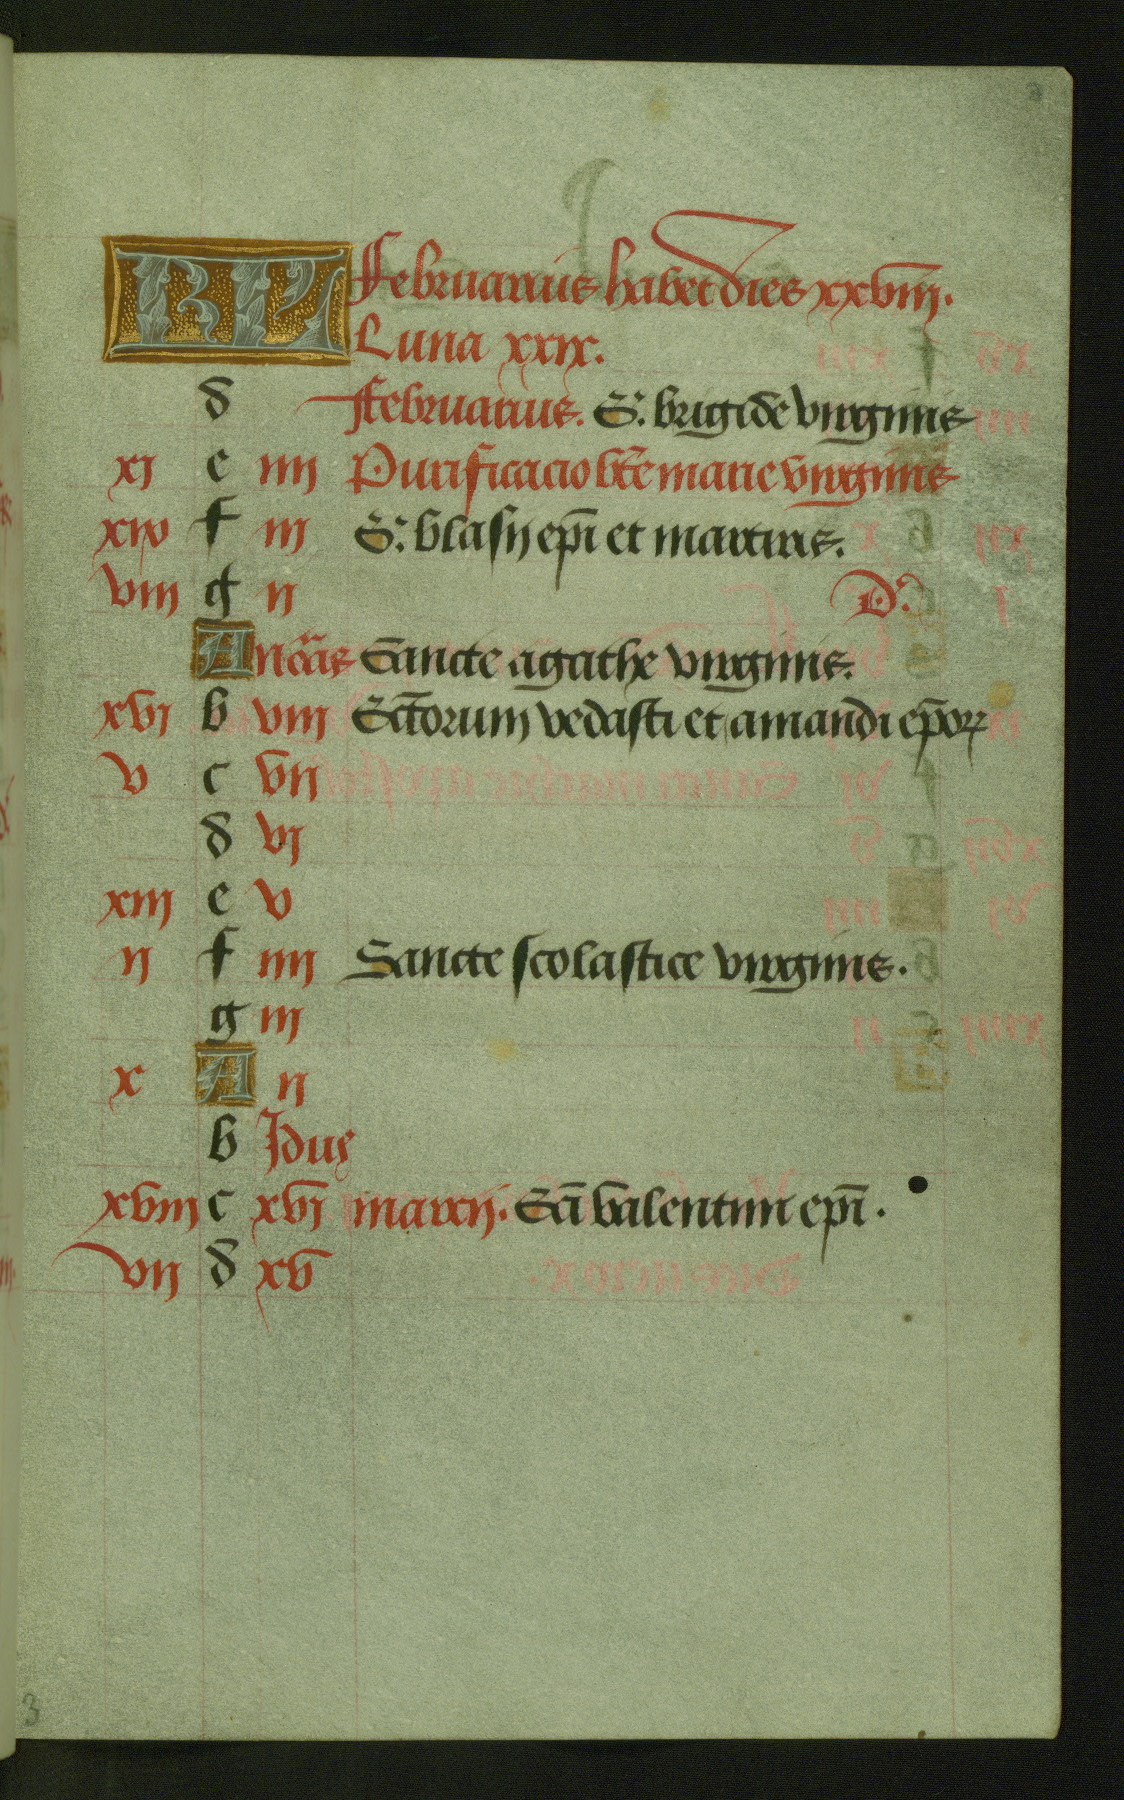 KL Februarius habet dies xxviii.
Luna xxix.
d Februarius. S. brigide virginis
xi e iiii Purificacio bte marie virginis
xix f iii S. blasij epi et martiris.
viii g ii D.
A nonas Sancte agathe virginis.
xvi b viii Sctorum vedasti et amandi epor
v c vii
d vi
xiii e v
ii f iiii Sancte scolastice virginis.
g iii
x A ii
b Idus
xviii c xvi marcij. Sci valentini epi.
vii d xv
3